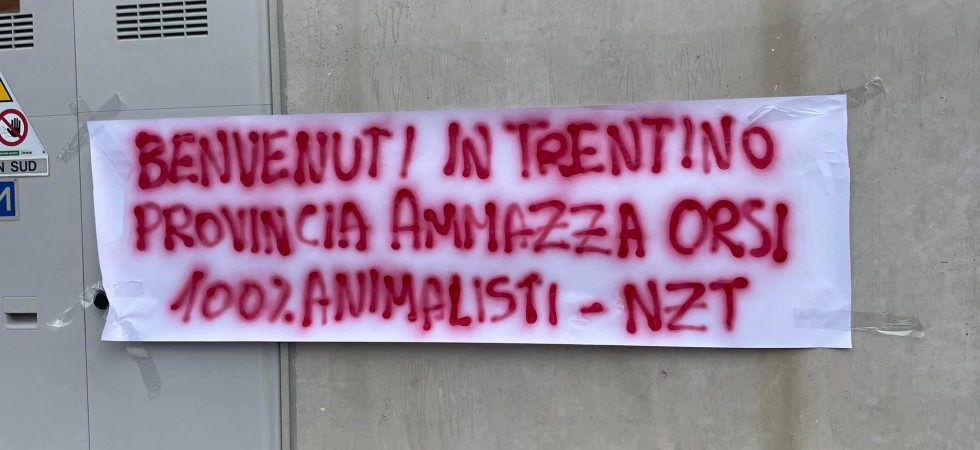 BENVENUTI IN TRENTINO
PROVINCIA AMMAZZA ORSI
100% ANIMALISTI - NZT
N SUD
M